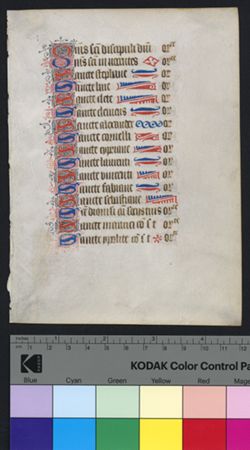 Oms sci discipuli dni or
Oms sci innocentes or
Sancte stephane or
Sancte line or
Sancte clete or
Sancte clemens or
Sancte alexander or
Sancte corneli or
Sancte cypriane or
Sancte laurenti or
Sancte vincenti or
Sancte fabiane or
Sancte sebastiane or
dionisi cu sociis tuis or
Sancte maurici cu s t or
Sancte ypolite cu s t or
1 2 3 4 5 6 7
KODAK Color Control Pa
Kodak
Blue Cyan Green Yellow Red Mage